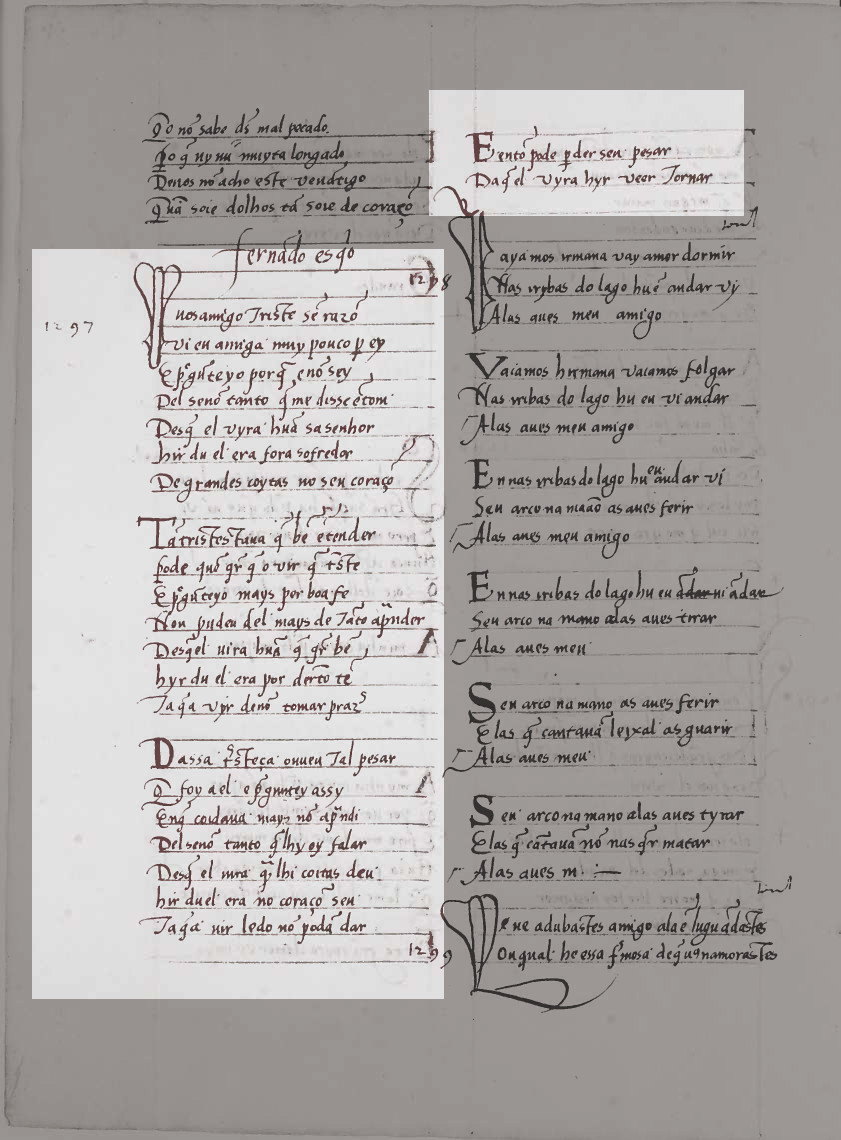 Qº nõ sabe ds mal pecado.
Po q̃ uy nũ muyta longado
Denos nõ acho este uendigo
Quã soie dolhos tã soie de coraçõ
fernãdo esqº
1298
1297
Vuosamigo Triste sẽ razõ
vi eu amiga muy pouco p ey
E pºgũteyo porq̃ enõ sey
Del senõ tanto q̃ me disse etom
Desq̃ el uyra huã sa senhor
hir du el era fora sofredor
De grandes coytas no seu coraçõ
Tã tristestaua q̃ bẽ ẽtender
pode quẽ qr q̃ o vir q̃ tste
E pºgũteyo mays por boa fe
Non pudeu del mays de Tãto apñder
Desq̃l uira huã q̃ qr bẽ
hyr du el era por derto tẽ
Taqa vyr denõ tomar praz
Dassa tsteça ouueu Tal pesar
Q foy a el e pgũntey assy
Enq̃ coidaua mays nõ apñdi
Del senõ tanto q̃lhy ey falar
Desq̃ el uira q̃ lhi coitas deu
hir duel era no coraçõ seu
Taqa uir ledo nõ podã dar
1299
E entõ pode pder seu pesar
Daq̃ el vyra hyr veer Tornar
Vayamos irmana vay amor dormir
Nas irybas do lago hu ẽ andar vy
Alas aues meu amigo
Vaiamos hirmana vaiamos folgar
Nas ribas do lago hu eu vi andar
Alas aues meu amigo
En nas ribas do lago hu eu ãndar vi
Seu arco na maão as aues ferir
Alas aues meu amigo
En nas ribas do lago hu eu ãdar vi ãdar
Seu arco na mano alas aues tirar
Alas aues meu
Seu arco na mano as aues ferir
Elas q̃ cantauã leixal as guarir
Alas aues meu
Seu arco na mano alas aues tyrar
Elas q̃ cãtauã nõ nas qr matar
Alas aues m.
Que adubastes amigo ala ẽ lugu ãdastes
Ou qual he essa fmosa de q̃ uº namorastes